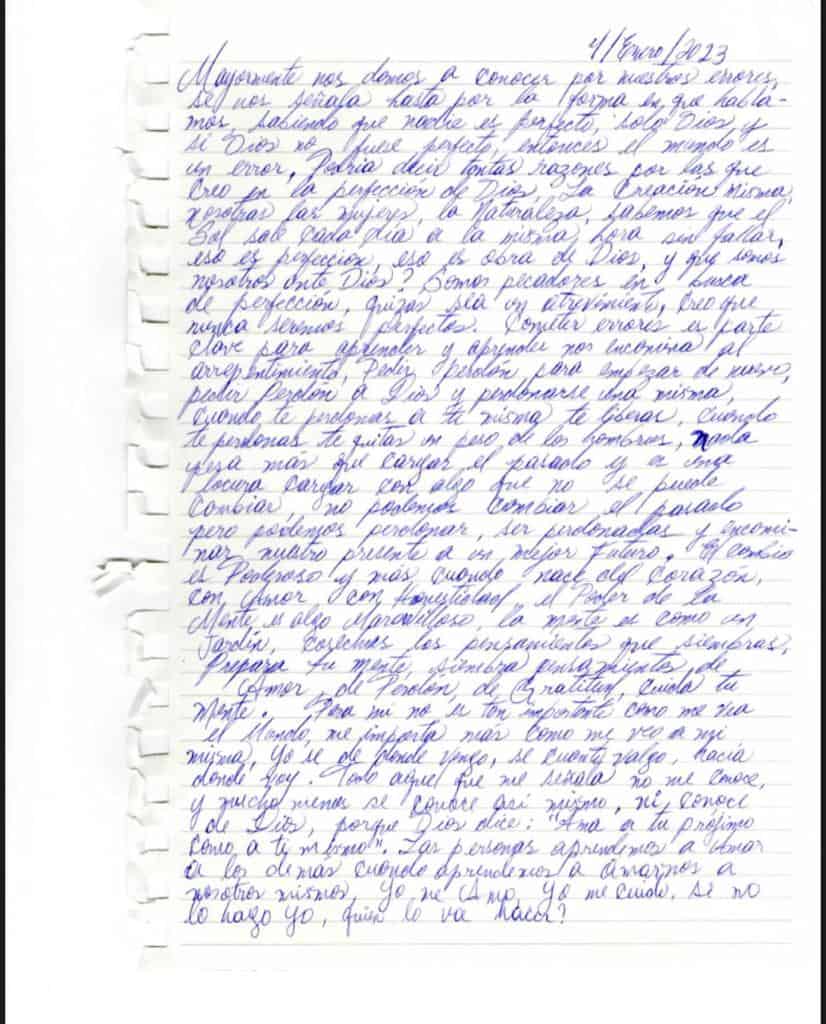 4/Enero/2023
Mayormente nos damos a conocer por nuestros errores,
se nos señala hasta por la forma en que habla-
mos, sabiendo que nadie es perfecto, solo Dios y
si Dios no fuese perfecto, entonces el mundo es
un error. Podria decir tantas razones por las que
creo en la perfección de Dios, La Creación misma,
nosotras las mujeres, la Naturaleza, sabemos que el
Sol sale cada dia a la misma hora sin fallar,
eso es perfección, eso es obra de Dios, y que somos
nosotros ante Dios? Somos pecadores en busca
de perfección, quizas sea un atrevimiento, creo que
nunca seremos perfectos. Cometer errores es parte
clave para aprender y aprender nos encamina al
arrepentimiento, Pedir perdón para empezar de nuevo,
pedir Perdón a Dios y perdonarse una misma,
cuando te perdonas a ti misma te liberas, cuando
te perdonas te quitas un peso de los hombros, nada
pesa más que cargar el pasado y es una
locura cargar con algo que no se puede
cambiar, no podemos cambiar el pasado
pero podemos perdonar, ser perdonadas y encami-
nar nuestro presente a un mejor Futuro. El cambio
es Poderoso y más cuando nace del Corazón,
con Amor con Honestidad, el Poder de la
Mente es algo Maravilloso, la mente es como un
Jardin, cosechas los pensamientos que siembras,
Prepara tu mente, siembra pensamientos de
Amor, de Perdón, de Gratitud, cuida tu
mente. Para mi no es tan importante como me vea
el Mundo, me importa más como me veo a mi
misma, Yo se de donde vengo, se cuanto valgo, hacia
donde voy. Todo aquel que me señala no me conoce,
y mucho menos se conoce asi mismo, ni conoce
de Dios, porque Dios dice: "Ama a tu prójimo
como a ti mismo". Las personas aprendemos a amar
a los demás cuando aprendemos a amarnos a
nosotros mismos, Yo me Amo, Yo me cuido, si no
lo hago yo, quien lo va hacer?